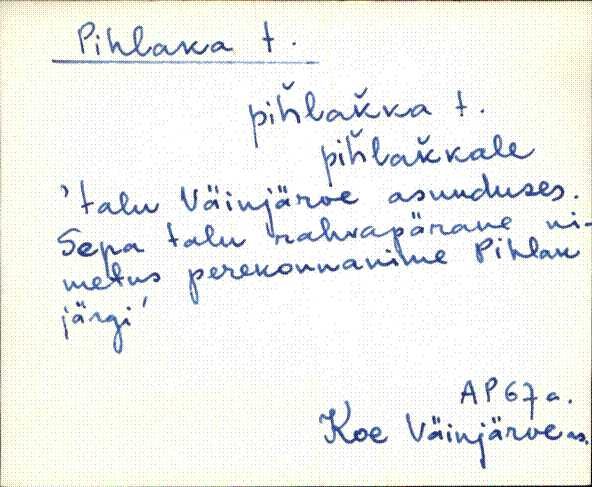 Pihlaka t.
piȟlak̆ka t.
piȟlak̆kale
'talu Väinjärve asunduses.
Sepa talu rahvapärane ni-
metus perekonnanime Pihlak
järgi'
AP 67 a.
Koe Väinjärve as.